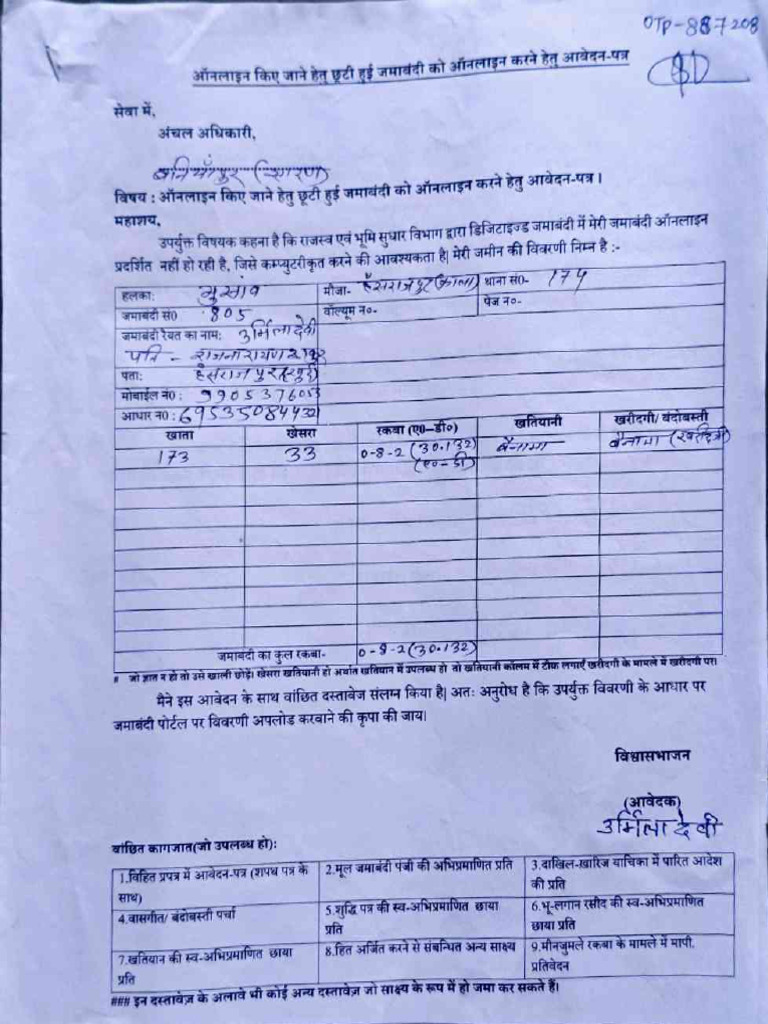 OTP-887208
ऑनलाइन किए जाने हेतु छूटी हुई जमाबंदी को ऑनलाइन करने हेतु आवेदन-पत्र
सेवा में,
अंचल अधिकारी,
बनियाँपुर (सारण)
विषय : ऑनलाइन किए जाने हेतु छूटी हुई जमाबंदी को ऑनलाइन करने हेतु आवेदन-पत्र ।
महाशय,
उपर्युक्त विषयक कहना है कि राजस्व एवं भूमि सुधार विभाग द्वारा डिजिटाइज्ड जमाबंदी में मेरी जमाबंदी ऑनलाइन
प्रदर्शित नहीं हो रही है, जिसे कम्प्युटरीकृत करने की आवश्यकता है| मेरी जमीन की विवरणी निम्न है :-
हलका: भुसांव मौजा- हंसराजपुर (कला) थाना सं0- 174
जमाबंदी सं0 805 वॉल्यूम न०- पेज न०-
जमाबंदी रैयत का नाम: उर्मिला देवी
पति - राजनारायण
पता: हंसराजपुर
मोबाईल न0 : 9905376053
आधार न0 : 695350844432
खाता खेसरा रकबा (ए०-डी०) खतियानी खरीदगी/ बंदोबस्ती
173 33 0-8-2 (30.132) बैनामा बैनामा
(ए०-डी)
जमाबंदी का कुल रकबा- 0-8-2 (30.132)
# जो ज्ञात न हो तो उसे खाली छोड़े। खेसरा खतियानी हो अर्थात खतियान में उपलब्ध हो तो खतियानी कॉलम में टीक लगाएँ खरीदगी के मामले में खरीदगी पर।
मैने इस आवेदन के साथ वांछित दस्तावेज संलग्न किया है| अतः अनुरोध है कि उपर्युक्त विवरणी के आधार पर
जमाबंदी पोर्टल पर विवरणी अपलोड करवाने की कृपा की जाय।
विश्वासभाजन
(आवेदक)
उर्मिला देवी
वांछित कागजात(जो उपलब्ध हो):
1.विहित प्रपत्र में आवेदन-पत्र (शपथ पत्र के साथ) 2.मूल जमाबंदी पंजी की अभिप्रमाणित प्रति 3.दाखिल-खारिज याचिका में पारित आदेश की प्रति
4.वासगीत/ बंदोबस्ती पर्चा 5.शुद्धि पत्र की स्व-अभिप्रमाणित छाया प्रति 6.भू-लगान रसीद की स्व-अभिप्रमाणित छाया प्रति
7.खतियान की स्व-अभिप्रमाणित छाया प्रति 8.हित अर्जित करने से संबन्धित अन्य साक्ष्य 9.मीनजुमले रकबा के मामले में मापी. प्रतिवेदन
### इन दस्तावेज़ के अलावे भी कोई अन्य दस्तावेज़ जो साक्ष्य के रूप में हो जमा कर सकते हैं।